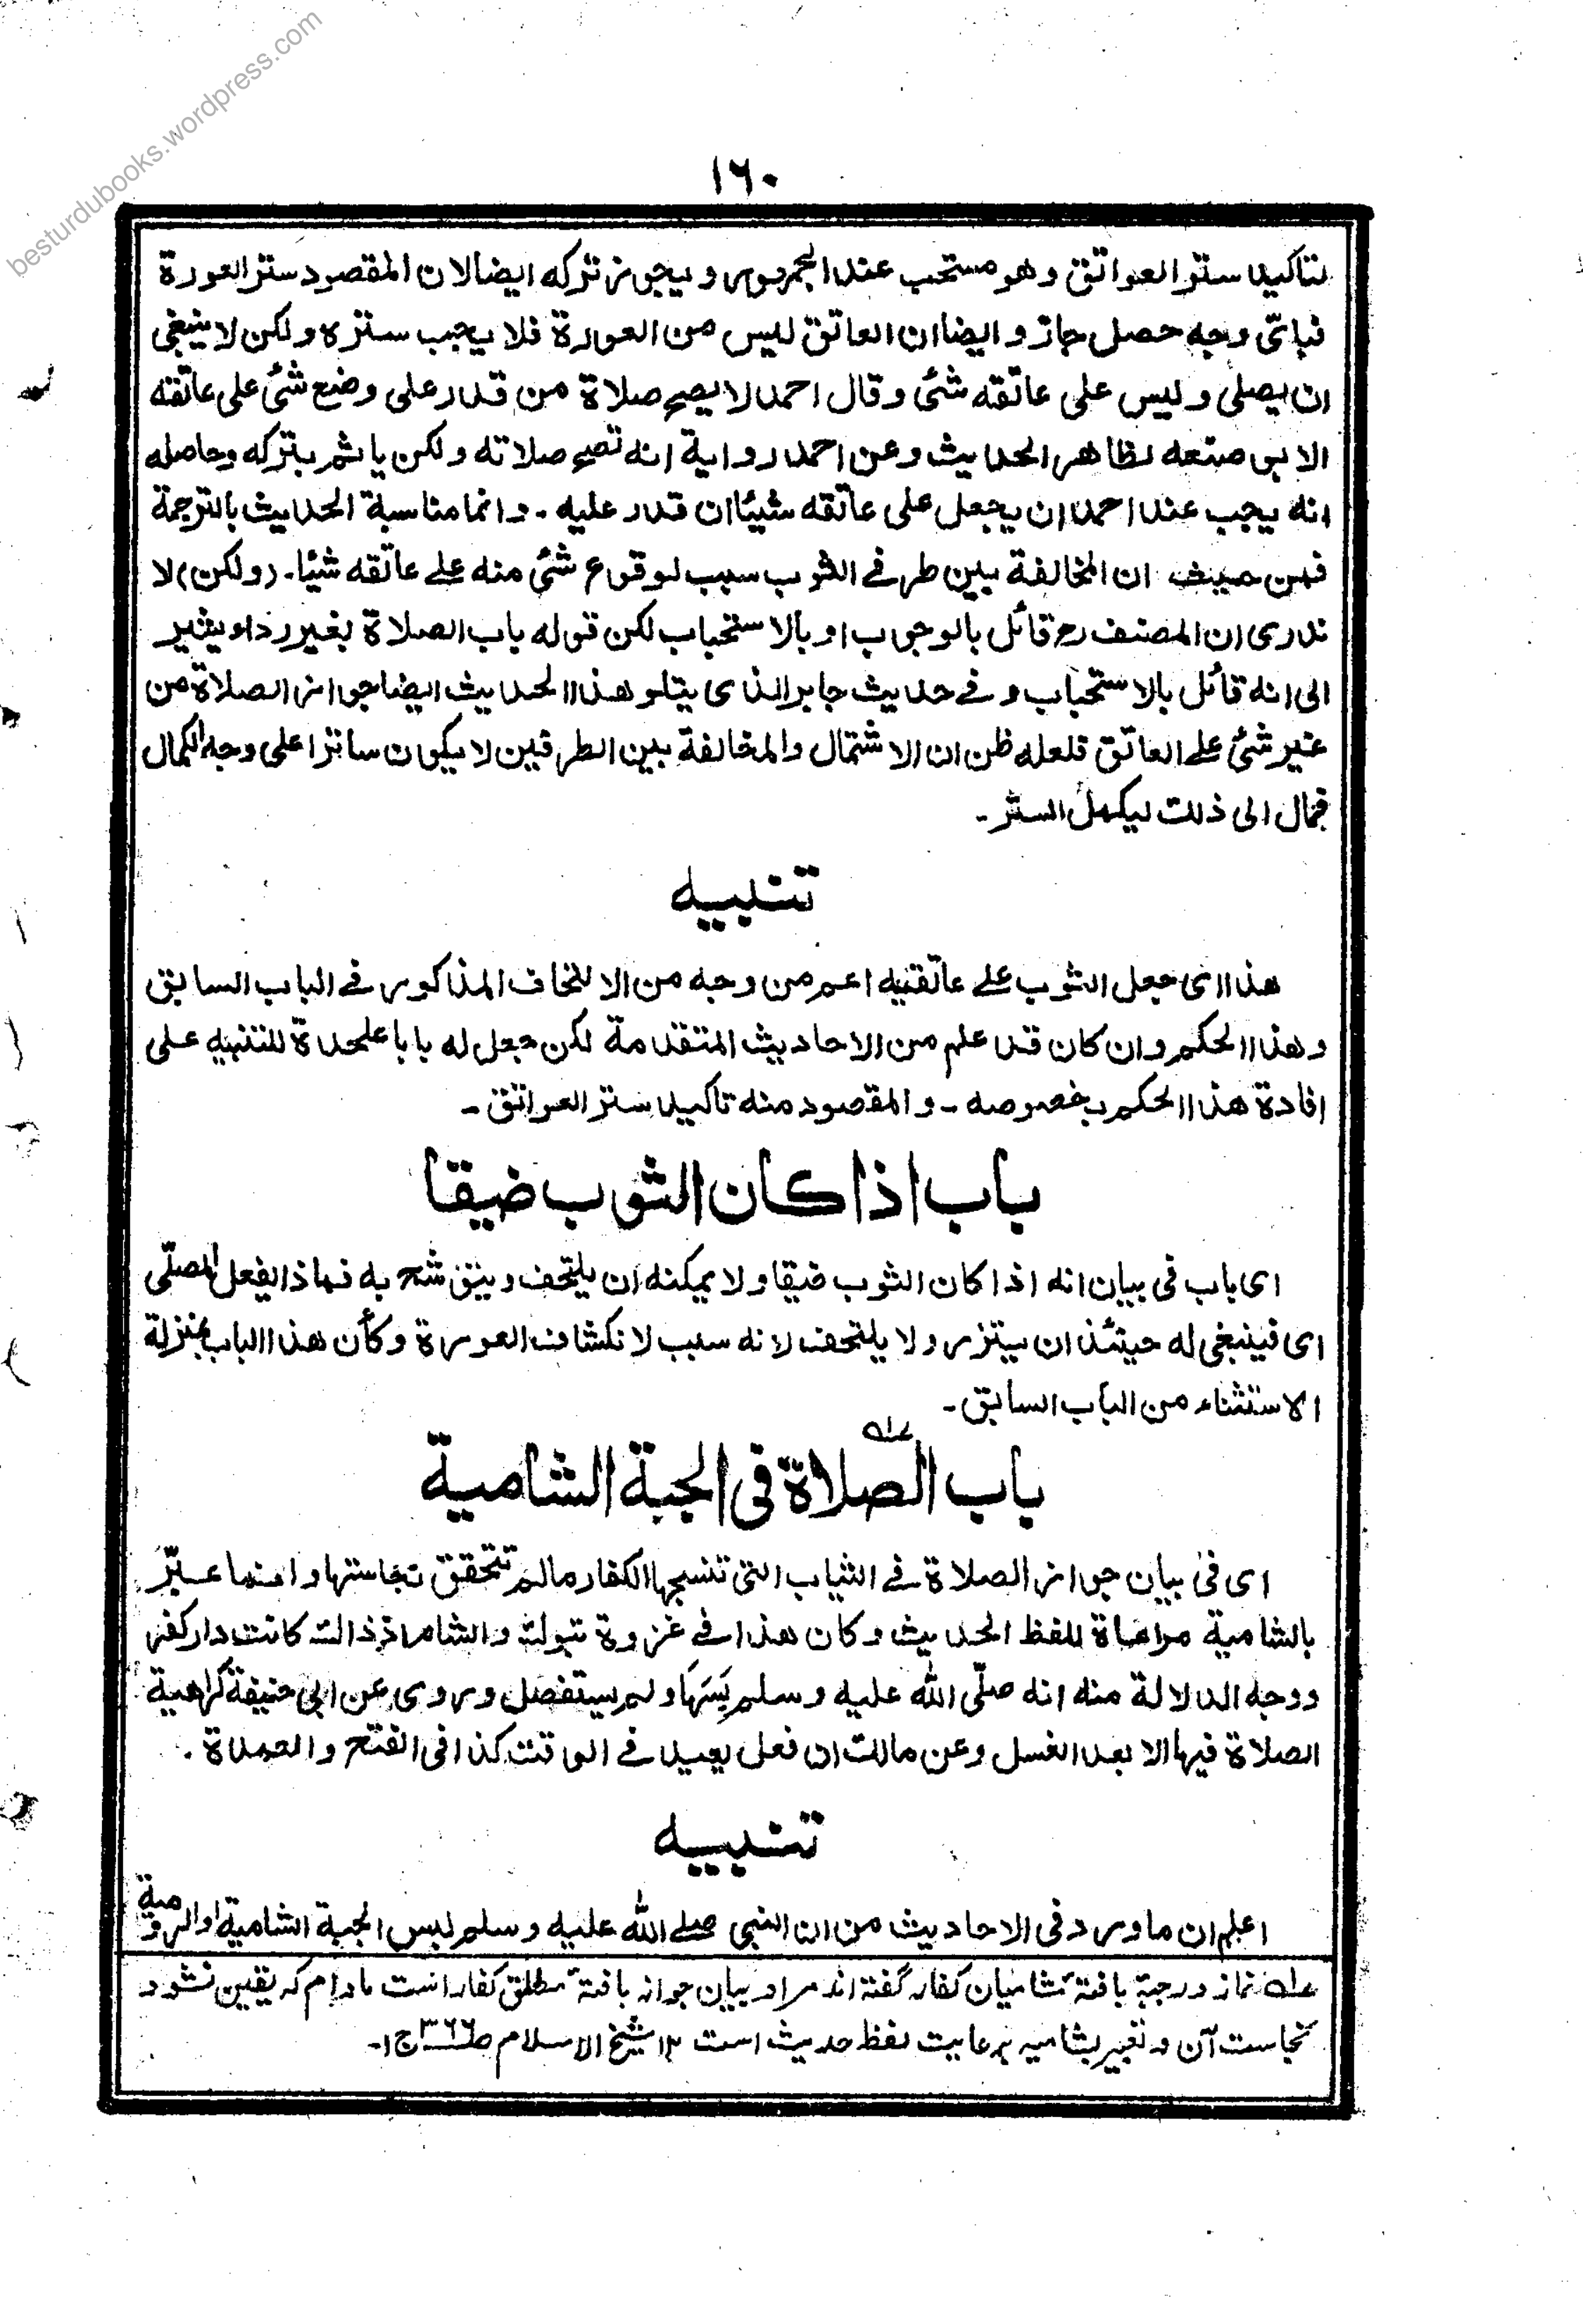 besturdubooks.wordpress.com
١٦٠
لتاكيد ستر العواتق وهو مستحب عند الجمهور ويجوز تركه ايضا لان المقصود ستر العورة
فبائ وجه حصل جاز وايضا ان العاتق ليس من العورة فلا يجب ستره ولكن لا ينبغى
ان يصلى وليس على عاتقه شئ وقال احمد لا يصح صلاة من قدر على وضع شئ على عاتقه
الا بوضعه لظاهر الحديث وعن احمد رواية انه تصح صلاته ولكن ياثم بتركه وحاصله
انه يجب عند احمد ان يجعل على عاتقه شيئا ان قدر عليه - وانما مناسبة الحديث بالترجمة
فمن حيث ان المخالفة بين طرفے الثوب سبب لوقوع شئ منه علے عاتقه شيئا. (ولكن) لا
ندرى ان المصنف رح قائل بالوجوب او بالاستحباب لكن قوله باب الصلاة بغير رداء يشير
الى انه قائل بالاستحباب وفے حديث جابر الذى يتلو هذا الحديث ايضا جواز الصلاة من
غير شئ علے العاتق فلعله ظن ان الاشتمال والمخالفة بين الطرفين لا يكون ساترا على وجه الكمال
فمال الى ذلك ليكمل الستر -
تنبيه
هذا اى جعل الثوب علے عاتقيه اعم من وجه من الالتحاف المذكور فے الباب السابق
وهذا الحكم وان كان قد علم من الاحاديث المتقدمة لكن جعل له بابا علحدة للتنبيه على
افادة هذا الحكم بخصوصه - والمقصود منه تاكيد ستر العواتق -
باب اذا كان الثوب ضيقا
اى باب فى بيان انه اذا كان الثوب ضيقا ولا يمكنه ان يلتحف ويتوشح به فماذا يفعل المصلّى
اى فينبغى له حينئذ ان يتزر ولا يلتحف لانه سبب لانكشاف العورة وكأن هذا الباب بمنزلة
الاستثناء من الباب السابق -
باب الصّلاة فى الجبة الشامية عـه
اى فى بيان جواز الصلاة فے الثياب التى تنسجها الكفار مالم تتحقق نجاستها وانما عبّر
بالشامية مراعاة للفظ الحديث وكان هذا فے غزوة تبوك والشام اذ ذالك كانت دار كفر
ووجه الدلالة منه انه صلّى الله عليه وسلم لبسها ولم يستفصل وروى عن ابى حنيفة كراهية
الصلاة فيها الا بعد الغسل وعن مالك ان فعل يعيد فے الوقت كذا فى الفتح والعمدة .
تنبيه
اعلم ان ما ورد فى الاحاديث من ان النبى صلے الله عليه وسلم لبس الجبة الشامية او الرومية
عـه نماز در جبۂ بافتۂ شاميان كفار گفته اند مراد بيان جواز بافتۂ مطلق كفار است مادام كه يقين نشود
نجاست آن و تعبير بشاميه برعايت لفظ حديث است ١٢ شيخ الاسلام صـ٣٦٦ ج ١-